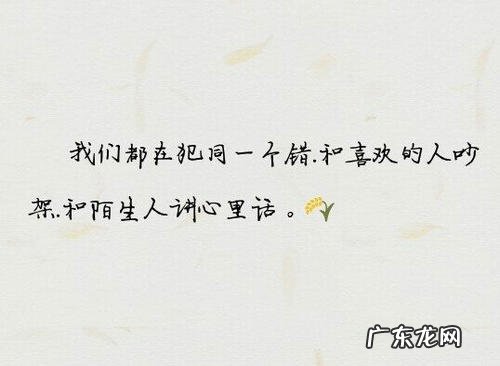 我们都在犯同一个错.和喜欢的人吵
架.和陌生人讲心里话。
广东龙网